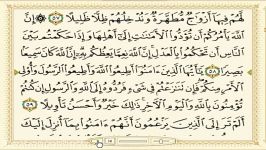 لَّهُمْ فِيهَا أَزْوَاجٌ مُّطَهَّرَةٌ وَنُدْخِلُهُمْ ظِلًّا ظَلِيلًا ﴿٥٧﴾ إِنَّ
اللَّهَ يَأْمُرُكُمْ أَن تُؤَدُّوا الْأَمَانَاتِ إِلَىٰ أَهْلِهَا وَإِذَا حَكَمْتُم بَيْنَ
النَّاسِ أَن تَحْكُمُوا بِالْعَدْلِ إِنَّ اللَّهَ نِعِمَّا يَعِظُكُم بِهِ إِنَّ اللَّهَ كَانَ سَمِيعًا
بَصِيرًا ﴿٥٨﴾ يَا أَيُّهَا الَّذِينَ آمَنُوا أَطِيعُوا اللَّهَ وَأَطِيعُوا الرَّسُولَ وَأُولِي
الْأَمْرِ مِنكُمْ فَإِن تَنَازَعْتُمْ فِي شَيْءٍ فَرُدُّوهُ إِلَى اللَّهِ وَالرَّسُولِ إِن كُنتُمْ
تُؤْمِنُونَ بِاللَّهِ وَالْيَوْمِ الْآخِرِ ذَٰلِكَ خَيْرٌ وَأَحْسَنُ تَأْوِيلًا ﴿٥٩﴾
أَلَمْ تَرَ إِلَى الَّذِينَ يَزْعُمُونَ أَنَّهُمْ آمَنُوا بِمَا أُنزِلَ إِلَيْكَ